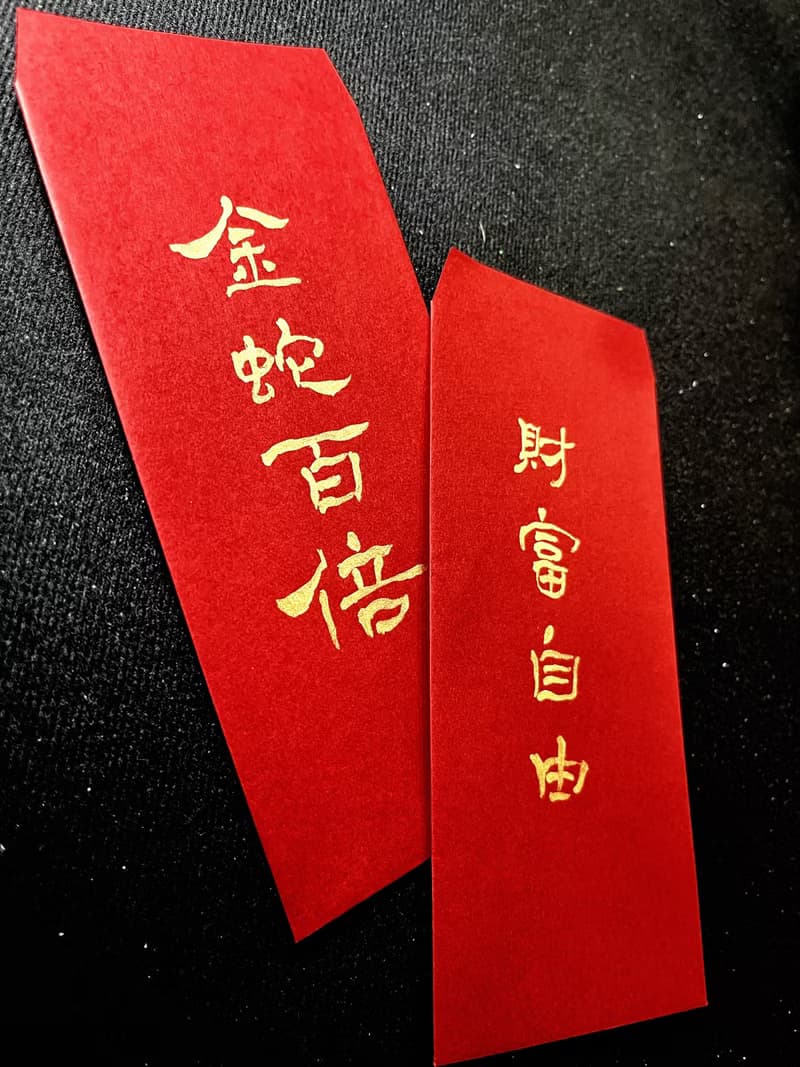 金蛇百倍
財富自由